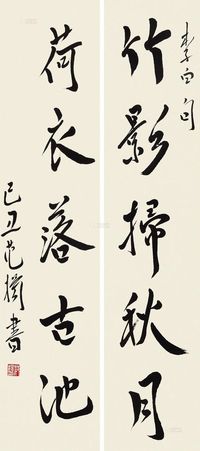 李白句
竹影掃秋月
荷衣落古池
己丑 書